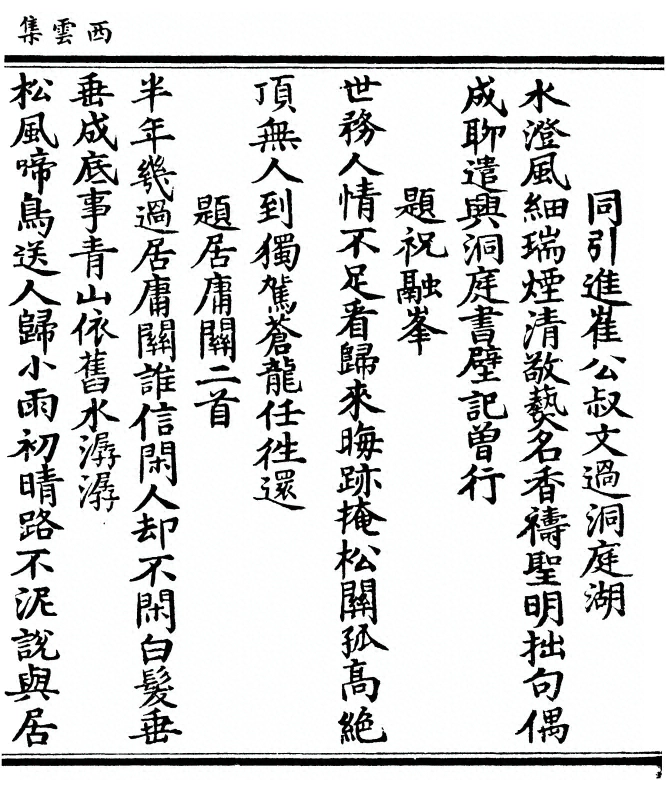 西雲集
同引進崔公叔文過洞庭湖
水澄風細瑞煙清敬爇名香禱聖明拙句偶
成聊遣興洞庭書壁記曾行
題祝融峯
世務人情不足看歸來晦跡掩松關孤高絕
頂無人到獨駕蒼龍任徃還
題居庸關二首
半年幾過居庸關誰信閑人却不閑白髮垂
垂成底事青山依舊水潺潺
松風啼鳥送人歸小雨初晴路不泥說與居